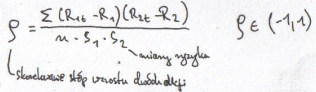 ρ = Σ (R1t - R1)(R2t - R2) / n · S1 · S2    ρ ∈ (-1,1)
miary ryzyka
skorelowanie stóp wzrostu dwóch akcji